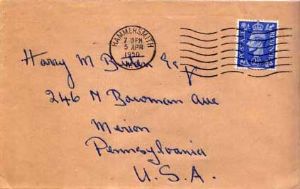 HAMMERSMITH
7 15 PM
5 APR
1950
Harry M Esq
246 N Bowman Ave
Merion
Pennsylvania
U.S.A.